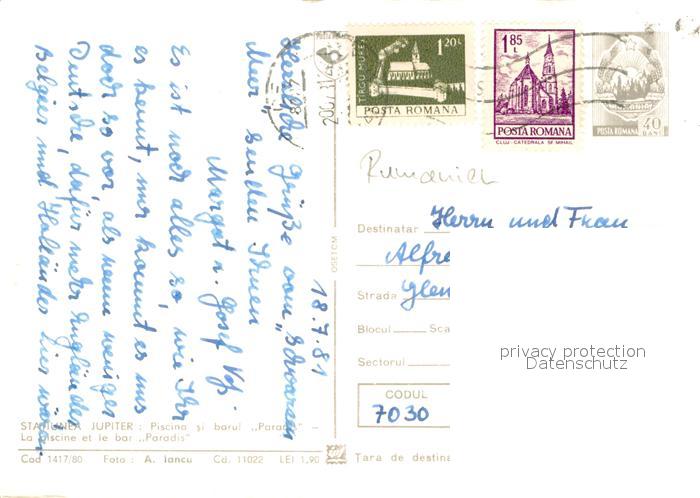 18.7.81
Herzliche Grüße vom „Schwarzen
Meer" senden Ihnen
Margot u. Josef
Es ist noch alles so, wie Ihr
es kennt, nur kommt es uns
doch so vor, als wenn weniger
Deutsche, dafür mehr Engländer,
Belgier und Holländer hier wären.
1.20L
TÎRGU MUREŞ
POSTA ROMANA
1.85 L
POSTA ROMANA
CLUJ - CATEDRALA SF. MIHAIL
POSTA ROMANA 40 BANI
OSETCM
Destinatar Herrn und Frau
Alfre
Strada Glen
Blocul Sca
Sectorul
privacy protection
Datenschutz
CODUL
7030
Tara de destina
STAŢIUNEA JUPITER : Piscina şi barul „Paradis" –
La piscine et le bar „Paradis"
Cod 1417/80 Foto : A. Iancu Cd. 11022 LEI 1,90